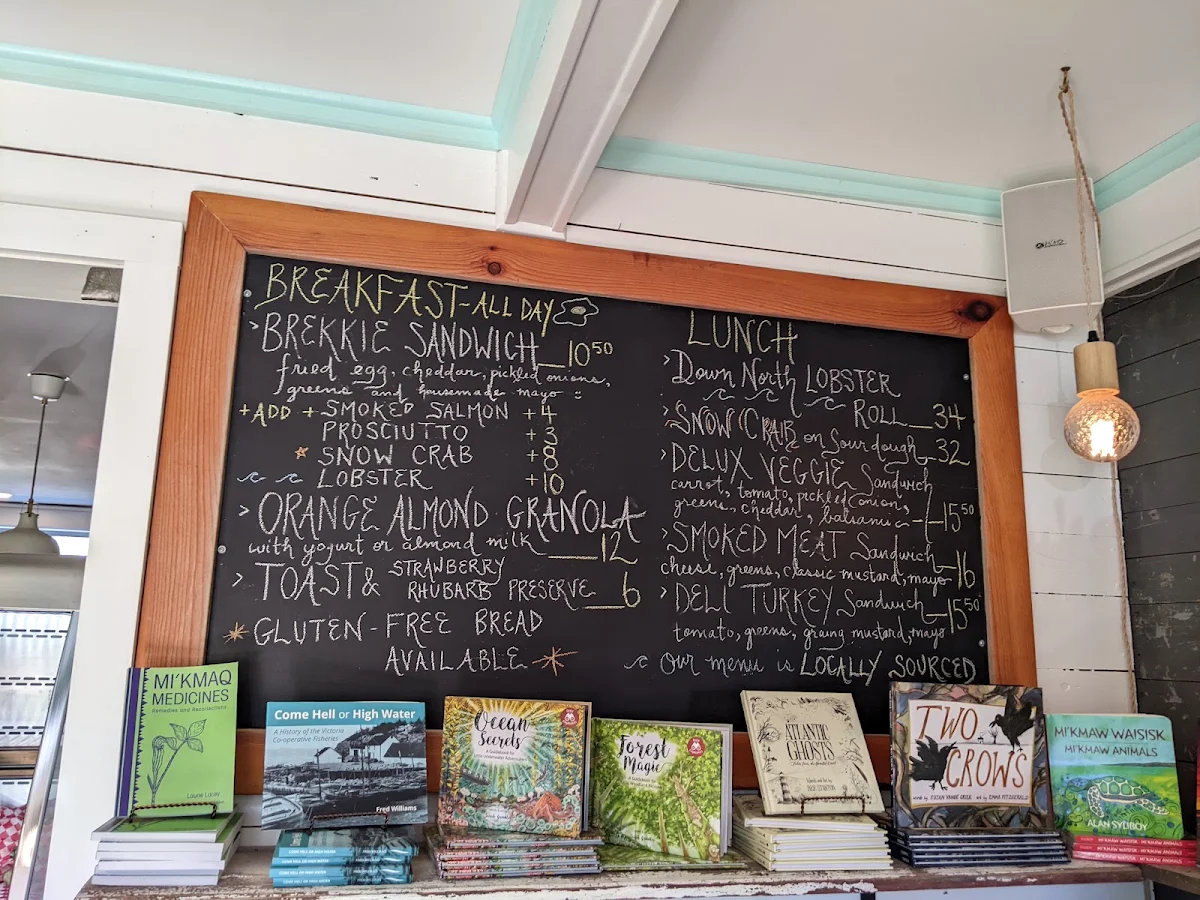 BREAKFAST-ALL DAY
>BREKKIE SANDWICH__10 50
fried egg, cheddar, pickled onions,
greens and housemade mayo
+ADD + SMOKED SALMON +4
PROSCIUTTO +3
SNOW CRAB +8
LOBSTER +10
> ORANGE ALMOND GRANOLA
with yogurt or almond milk ____12
> TOAST & STRAWBERRY
RHUBARB PRESERVE __6
GLUTEN-FREE BREAD
AVAILABLE
LUNCH
>Down North LOBSTER
ROLL__34
>SNOW CRAB on Sourdough_32
>DELUX VEGGIE Sandwich
carrot, tomato, pickled onion,
greens, cheddar, balsamic -15 50
>SMOKED MEAT Sandwich
cheese, greens, classic mustard, mayo 16
>DELI TURKEY Sandwich_15 50
tomato, greens, grainy mustard, mayo
Our menu is LOCALLY SOURCED
MI'KMAQ
MEDICINES
Remedies and Recollections
Laurie Lacey
Come Hell or High Water
A History of the Victoria
Co-operative Fisheries
Fred Williams
COME HELL OR HIGH WATER
Ocean
Secrets
Forest
Magic
ATLANTIC
GHOSTS
TWO
CROWS
MI'KMAW WAISISK
MI'KMAW ANIMALS
ALAN SYLIBOY
MI'KMAW WAISISK MI'KMAW ANIMALS